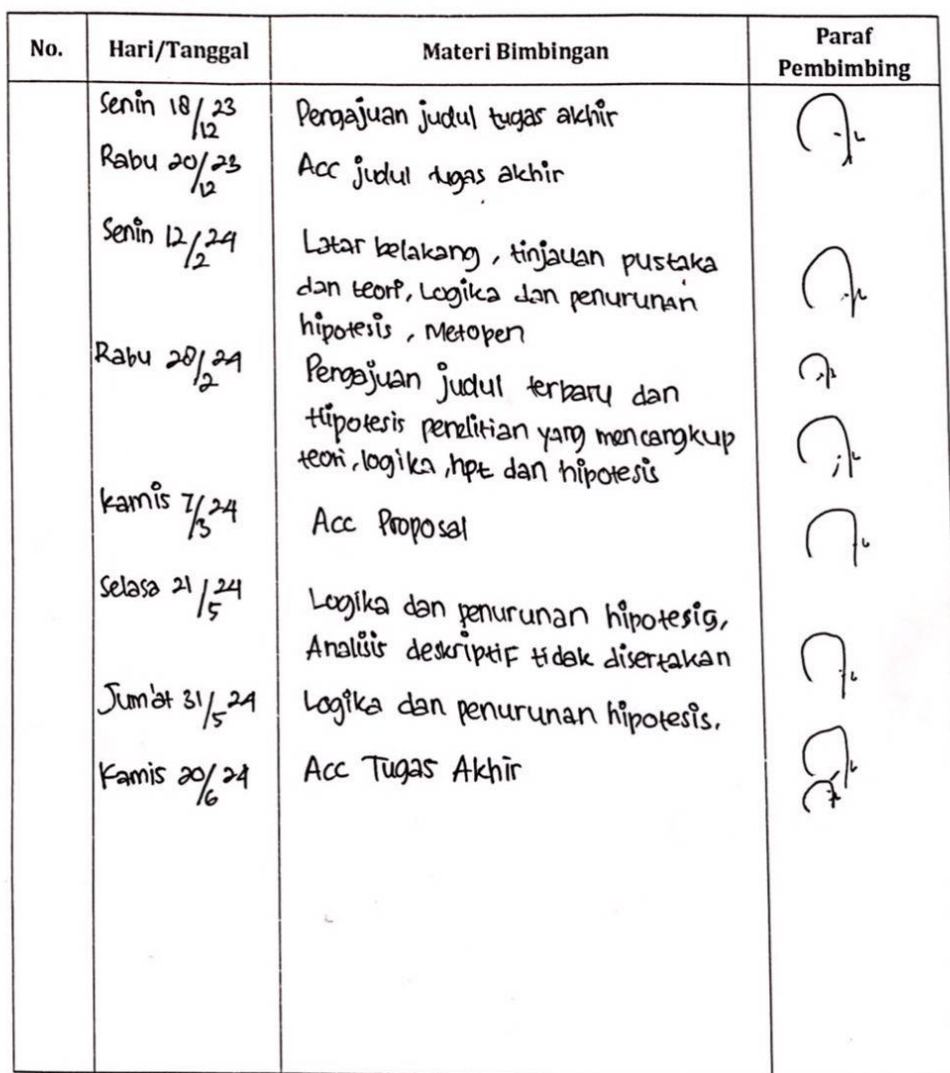 No. Hari/Tanggal Materi Bimbingan Paraf Pembimbing
Senin 18/12 23 Pengajuan judul tugas akhir
Rabu 20/12 23 Acc judul tugas akhir
Senin 12/2 24 Latar belakang, tinjauan pustaka
dan teori, Logika dan penurunan
hipotesis, Metopen
Rabu 28/2 24 Pengajuan judul terbaru dan
Hipotesis penelitian yang mencangkup
teori, logika, hpt dan hipotesis
Kamis 7/3 24 Acc Proposal
Selasa 21/5 24 Logika dan penurunan hipotesis,
Analisis deskriptif tidak disertakan
Jum'at 31/5 24 Logika dan penurunan hipotesis.
Kamis 20/6 24 Acc Tugas Akhir